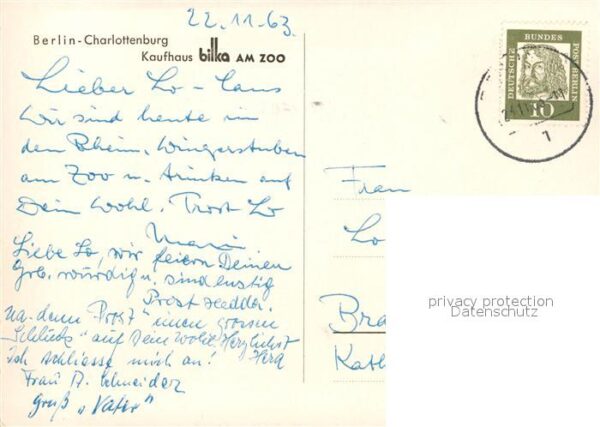 22.11.63.
Berlin-Charlottenburg
Kaufhaus bilka AM ZOO
Lieber Lo-
wir sind heute in
den Rhein. Wingerstuben
am Zoo u. trinken auf
Dein Wohl. Prost Lo
Liebe Lo, wir feiern Deinen
Geb. würdig u. sind lustig
Prost
na-denn "Prost" einen grossen
"Schluck" auf Dein Wohl. Herzlichst
Ich schliesse mich an! Hera
Frau A. Schneider
Gruß "Vater"
DEUTSCHE
BUNDES
POST BERLIN
10
1
Frau
Lo
Bra
Kath
privacy protection
Datenschutz